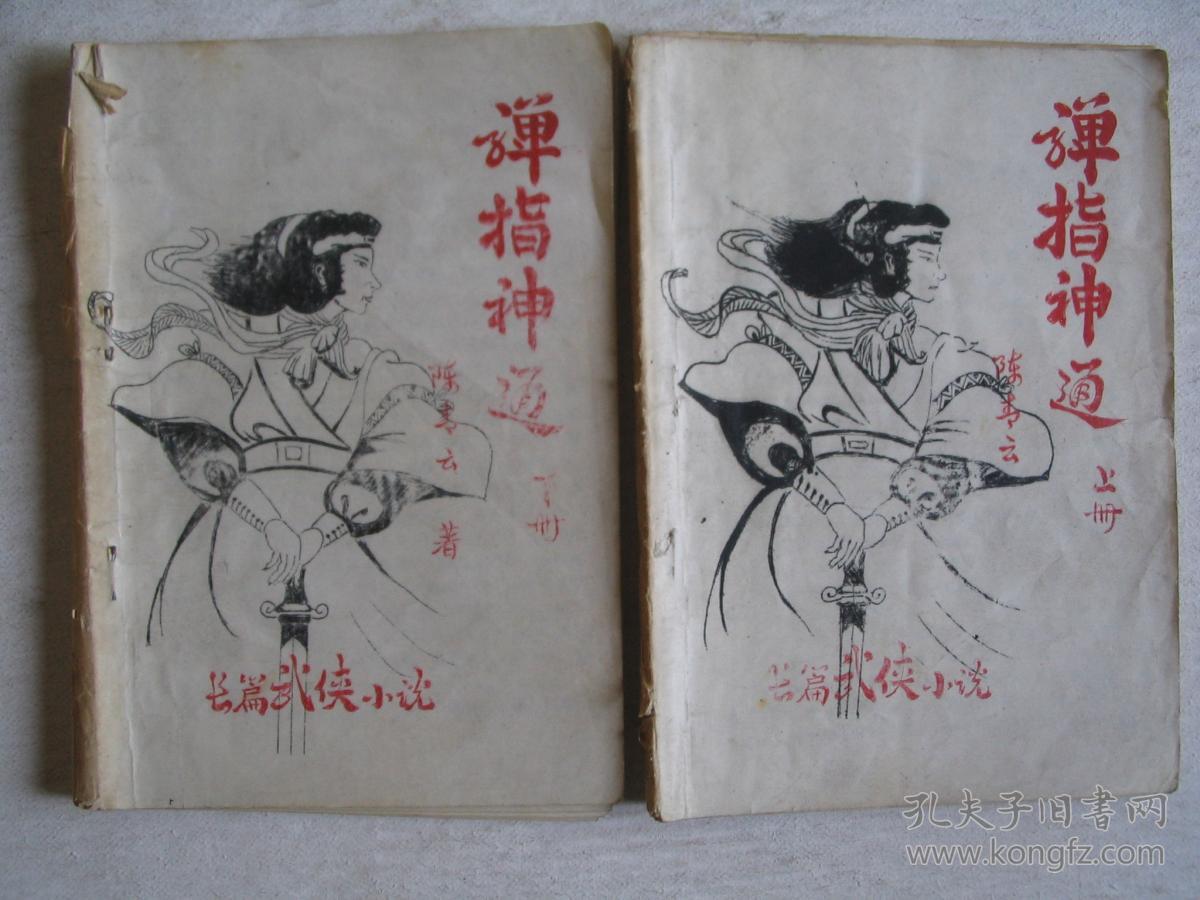 弹指神通
下册
陈青云 著
长篇武侠小说
弹指神通
上册
陈青云
长篇武侠小说
孔夫子旧书网
www.kongfz.com